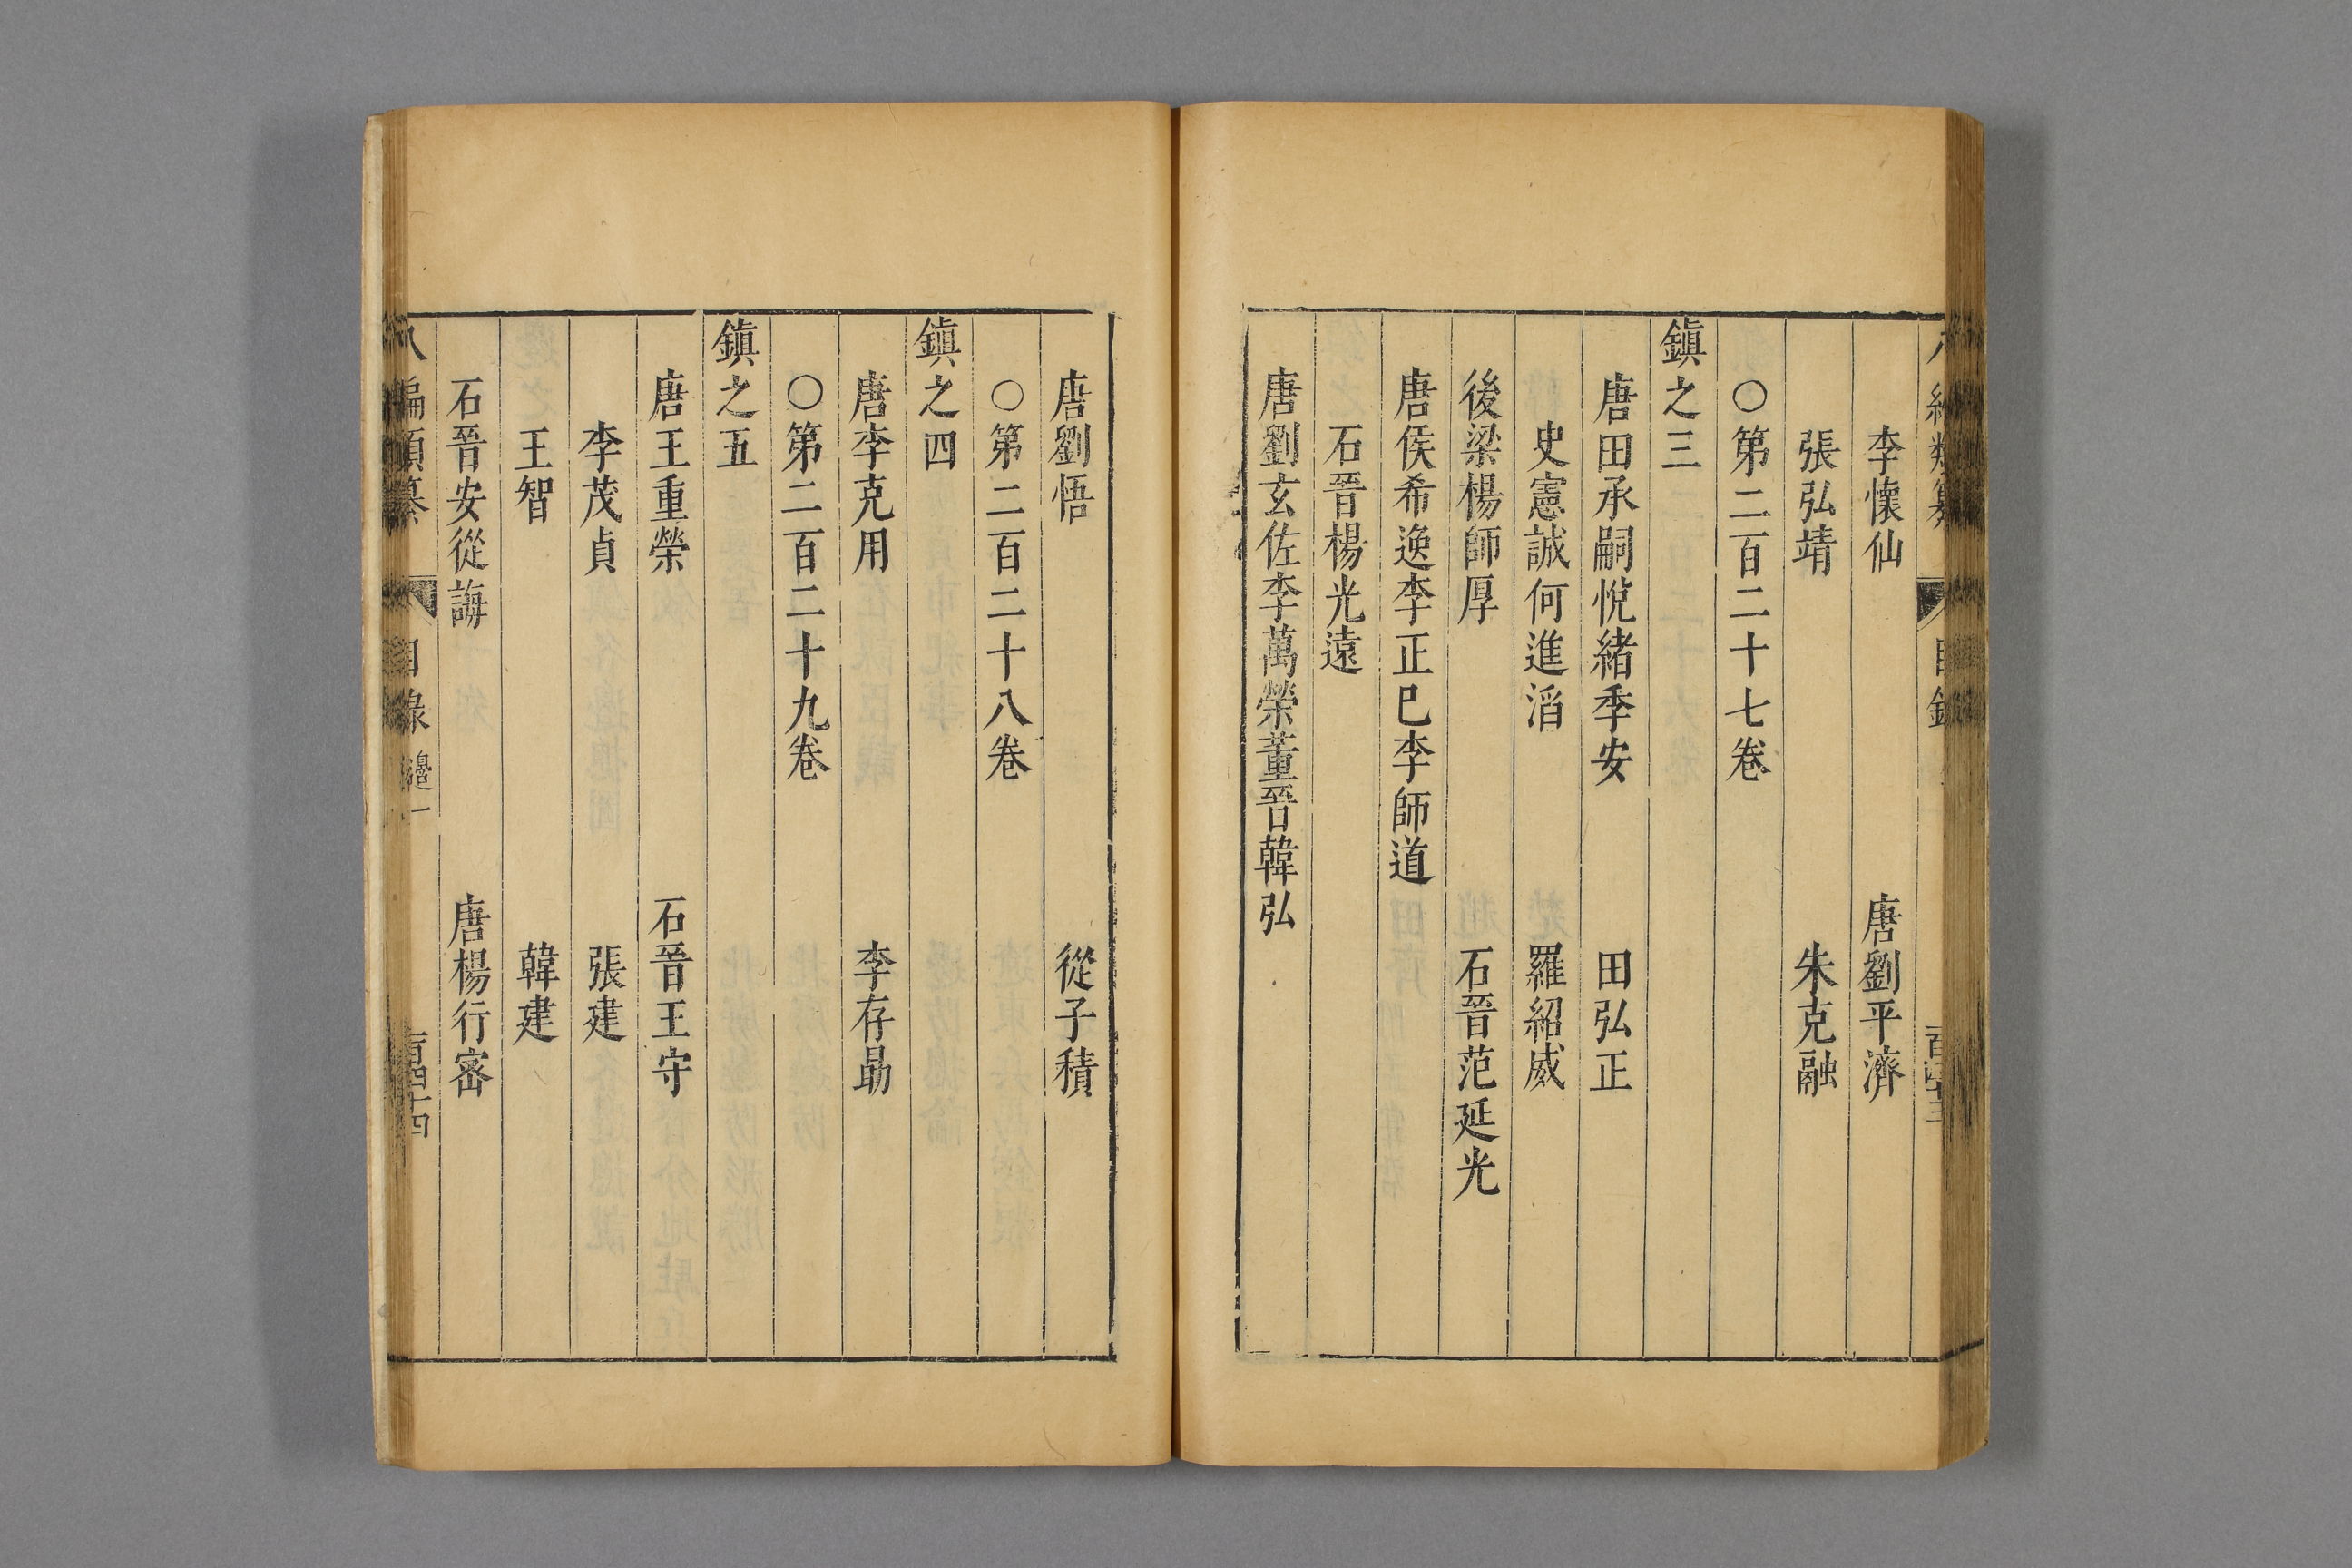 李懷仙　唐劉平濟
張弘靖　朱克融
○第二百二十七卷
鎮之三
唐田承嗣悅緒季安　田弘正
史憲誠何進滔　羅紹威
後梁楊師厚　石晉范延光
唐侯希逸李正巳李師道
石晉楊光遠
唐劉玄佐李萬榮董晉韓弘
唐劉悟　從子積
○第二百二十八卷
鎮之四
唐李克用　李存勗
○第二百二十九卷
鎮之五
唐王重榮　石晉王守
李茂貞　張建
王智　韓建
石晉安從誨　唐楊行密
八編類纂　目錄　邊一　百四十四